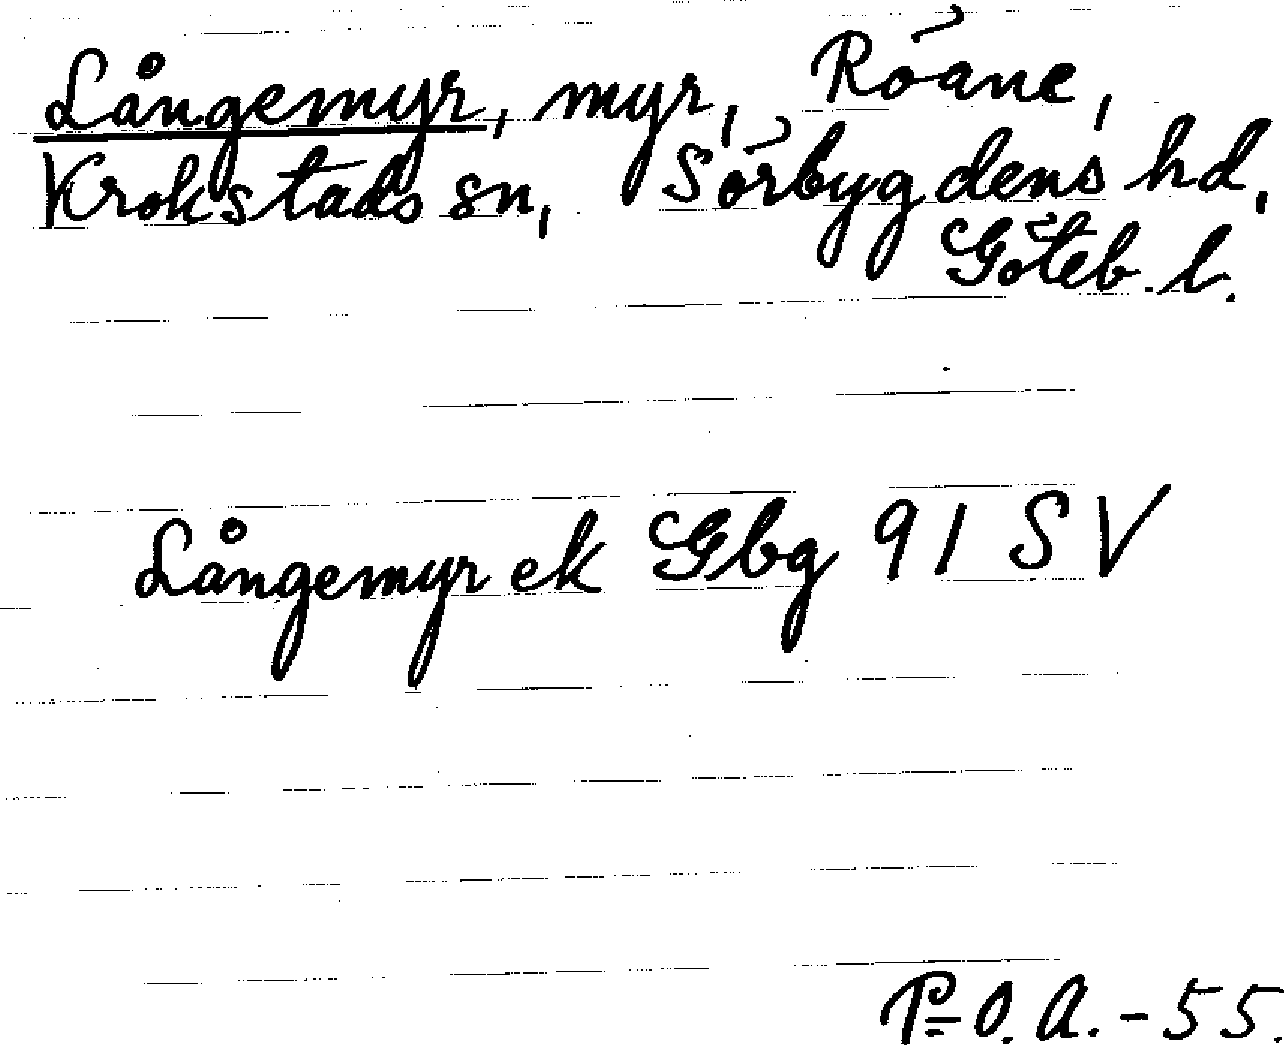 Långemyr, myr, Röane,
Krokstads sn, Sörbygdens hd,
Göteb. l.
Långemyr ek Gbg 91 SV
P=O. A. -55.